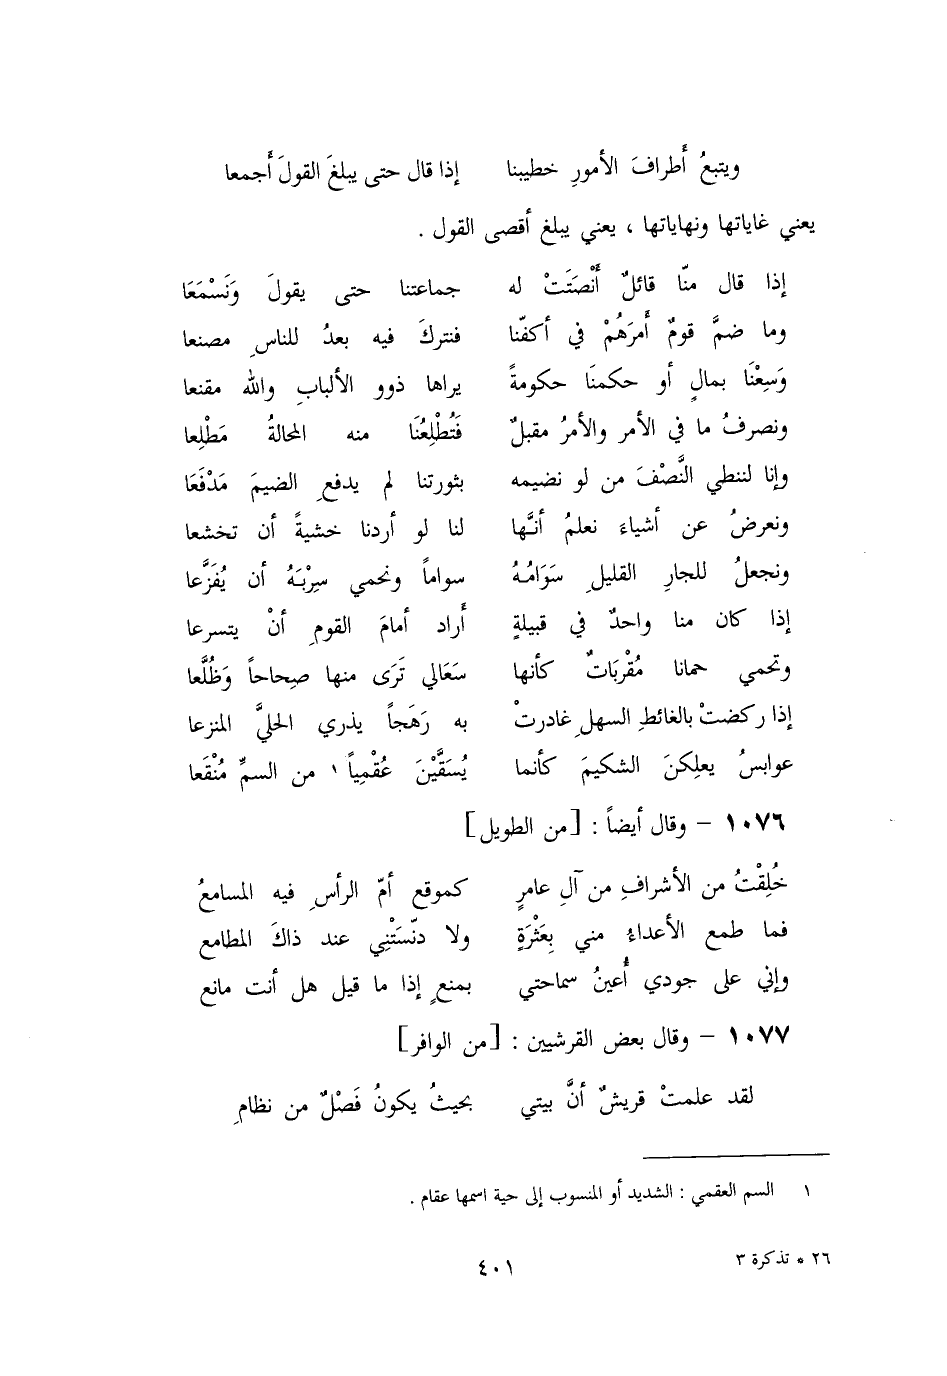 ويتبعُ أَطرافَ الأمورِ خطيبنا إذا قال حتى يبلغَ القولَ أَجمعا
يعني غاياتها ونهاياتها ، يعني يبلغ أقصى القول .
إذا قال منّا قائلٌ أَنْصَتَتْ له جماعتنا حتى يقولَ وَنَسْمَعَا
وما ضمَّ قومٌ أَمرَهُمْ في أكفّنا فنتركَ فيه بعدُ للناسِ مصنعا
وَسِعْنَا بمالٍ أو حكمنَا حكومةً يراها ذوو الألبابِ والله مقنعا
ونصرفُ ما في الأمر والأمرُ مقبلٌ فَتُطْلِعُنَا منه المحالةُ مَطْلِعا
وإنا لننطي النَّصْفَ من لو نضيمه بثورتنا لم يدفعِ الضيمَ مَدْفَعَا
ونعرضُ عن أشياءَ نعلمُ أنَّها لنا لو أردنا خشيةً أن تخشعا
ونجعلُ للجارِ القليلِ سَوَامُهُ سواماً ونحمي سِرْبَهُ أن يُفَزَّعا
إذا كان منا واحدٌ في قبيلةٍ أَراد أمامَ القومِ أنْ يتسرعا
وتحمي حمانا مُقْرِبَاتٌ كأنها سَعَالي تَرَى منها صِحاحاً وَظُلَّعا
إذا ركضتْ بالغائطِ السهلِ غادرتْ به رَهَجاً يذري الحليَّ المنزعا
عوابسُ يعلِكنَ الشكيمَ كأنما يُسَقَّيْنَ عُقْمِياً ١ من السمِّ مُنْقَعا
١٠٧٦ – وقال أيضاً : [من الطويل]
خُلِقْتُ من الأشرافِ من آلِ عامرٍ كموقع أمّ الرأسِ فيه المسامعُ
فما طمع الأعداءُ مني بِعَثْرَةٍ ولا دنّستْنِي عند ذاكَ المطامع
وإني على جودي أُعينُ سماحتي بمنعٍ إذا ما قيل هل أنت مانع
١٠٧٧ – وقال بعض القرشيين : [من الوافر]
لقد علمتْ قريشٌ أنَّ بيتي بحيثُ يكونُ فَصْلٌ من نظامِ
١ السم العقمي : الشديد أو المنسوب إلى حية اسمها عقام .
٢٦ * تذكرة ٣
٤٠١